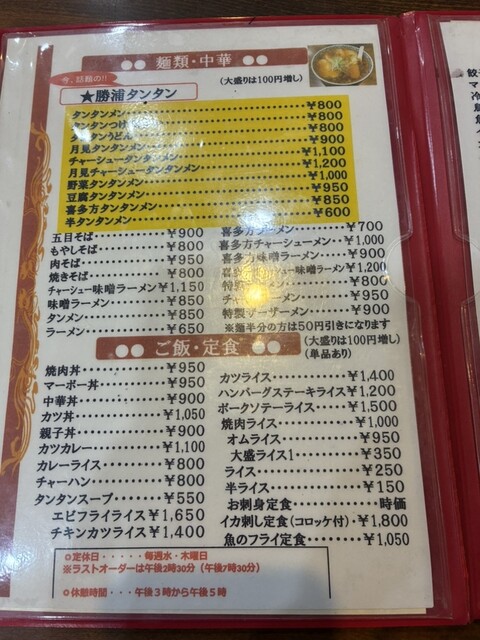 麺類・中華
今、話題の!!
(大盛りは100円増し)
★勝浦タンタン
タンタンメン ¥800
タンタンつけ ¥800
タンうどん ¥800
月見タンタンメン ¥900
チャーシュータンタンメン ¥1,100
月見チャーシュータンタンメン ¥1,200
野菜タンタンメン ¥1,000
豆腐タンタンメン ¥950
喜多方タンタンメン ¥850
半タンタンメン ¥600
五目そば ¥900
もやしそば ¥800
肉そば ¥950
焼きそば ¥800
チャーシュー味噌ラーメン ¥1,150
味噌ラーメン ¥850
タンメン ¥850
ラーメン ¥650
喜多方ラーメン ¥700
喜多方チャーシューメン ¥1,000
喜多方味噌ラーメン ¥900
シュー味噌ラーメン ¥1,200
¥800
チャ ーメン ¥950
特製 ーザーメン ¥900
※麺半分の方は50円引きになります
ご飯・定食
(大盛は100円増し)
(単品あり)
焼肉丼 ¥950
マーボー丼 ¥950
中華丼 ¥900
カツ丼 ¥1,050
親子丼 ¥900
カツカレー ¥1,100
カレーライス ¥800
チャーハン ¥800
タンタンスープ ¥550
エビフライライス ¥1,650
チキンカツライス ¥1,400
カツライス ¥1,400
ハンバーグステーキライス ¥1,200
ポークソテーライス ¥1,500
焼肉ライス ¥1,000
オムライス ¥950
大盛ライス1 ¥350
ライス ¥250
半ライス ¥150
お刺身定食 時価
イカ刺し定食(コロッケ付) ¥1,800
魚のフライ定食 ¥1,050
○定休日・・・・・毎週水・木曜日
※ラストオーダーは午後2時30分(午後7時30分)
○休憩時間・・・午後3時から午後5時
餃
マー
冷